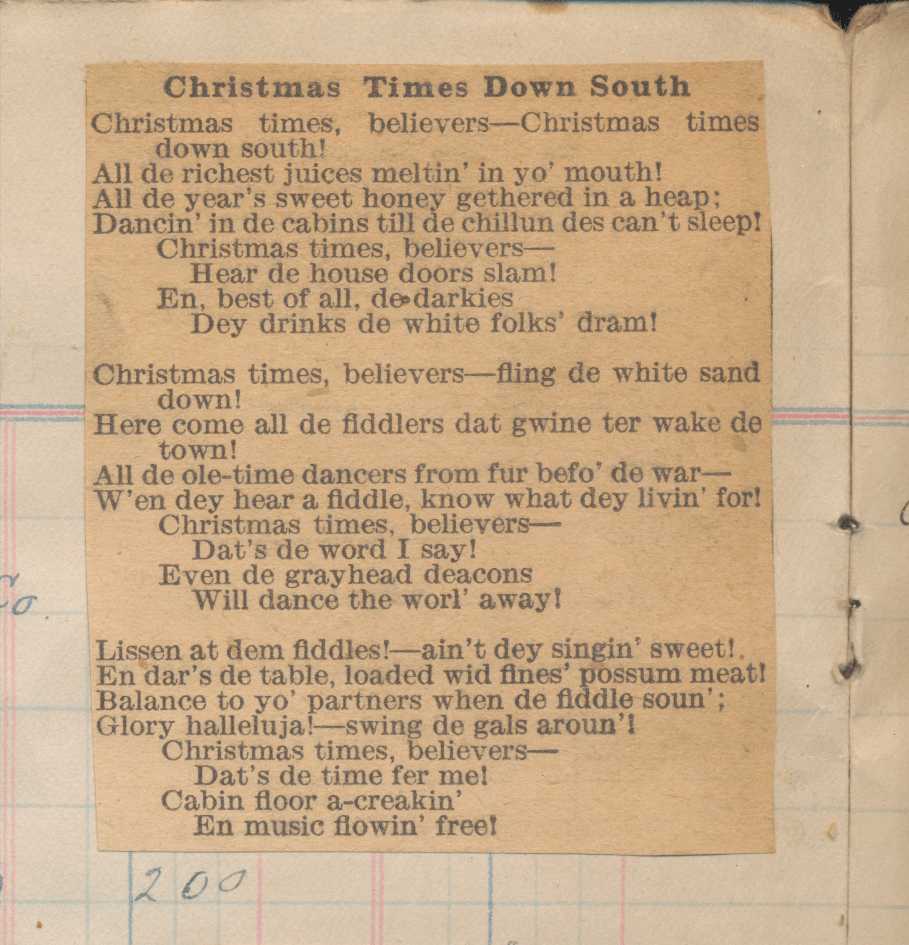 Christmas Times Down South
Christmas times, believers—Christmas times
down south!
All de richest juices meltin' in yo' mouth!
All de year's sweet honey gethered in a heap;
Dancin' in de cabins till de chillun des can't sleep!
Christmas times, believers—
Hear de house doors slam!
En, best of all, de darkies
Dey drinks de white folks' dram!
Christmas times, believers—fling de white sand
down!
Here come all de fiddlers dat gwine ter wake de
town!
All de ole-time dancers from fur befo' de war—
W'en dey hear a fiddle, know what dey livin' for!
Christmas times, believers—
Dat's de word I say!
Even de grayhead deacons
Will dance the worl' away!
Lissen at dem fiddles!—ain't dey singin' sweet!
En dar's de table, loaded wid fines' possum meat!
Balance to yo' partners when de fiddle soun';
Glory halleluja!—swing de gals aroun'!
Christmas times, believers—
Dat's de time fer me!
Cabin floor a-creakin'
En music flowin' free!
200